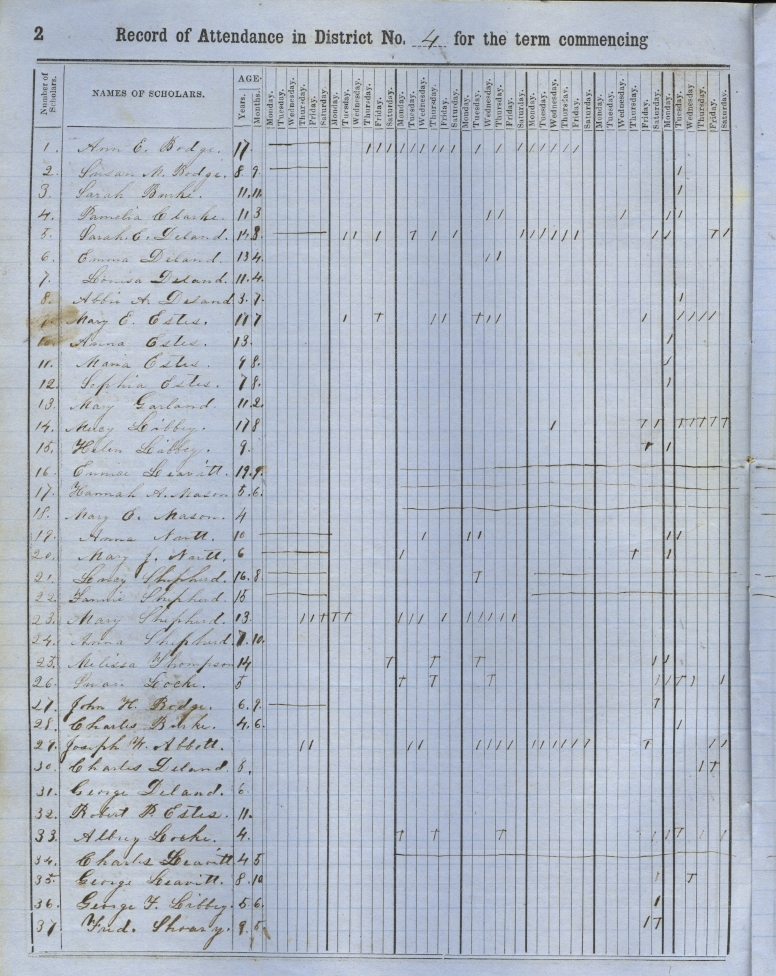 2 Record of Attendance in District No. 4 for the term commencing
Number of Scholars. NAMES OF SCHOLARS. AGE. Years. Months. Monday. Tuesday. Wednesday. Thursday. Friday. Saturday. Monday. Tuesday. Wednesday. Thursday. Friday. Saturday. Monday. Tuesday. Wednesday. Thursday. Friday. Saturday. Monday. Tuesday. Wednesday. Thursday. Friday. Saturday. Monday. Tuesday. Wednesday. Thursday. Friday. Saturday. Monday. Tuesday. Wednesday. Thursday. Friday. Saturday. Monday. Tuesday. Wednesday. Thursday. Friday. Saturday.
1. Ann E. Bodge. 17.
2. Susan M. Bodge. 8 9.
3. Sarah Burke. 11. 11.
4. Pamelia Clarke. 11 3
5. Sarah E. Deland. 14 3.
6. Emma Deland. 13 4.
7. Louisa Deland. 11. 4.
8. Abbie A. Deland 3. 7.
9. Mary E. Estes. 11 7
10. Anna Estes. 13.
11. Maria Estes. 9 8.
12. Sophia Estes. 7 8.
13. May Garland. 11. 2.
14. Libbey. 17 8
15. Helen Libbey. 9.
16. Leavitt. 12. 9.
17. Hannah A. Mason 5. 6.
18. Mary O. Mason. 4
19. Anna 10
20. Mary J. 6
21. Shepherd. 16. 8.
22. Fannie Shepherd. 15
23. Mary Shepherd. 13.
24. Anna Shepherd. 7. 10.
25. Melissa Thompson 14
26. Susan Locke. 5
27. John H. Bodge. 6. 9.
28. Charles Burke. 4. 6.
29. Joseph H. Abbott.
30. Charles Deland. 8.
31. George Deland. 6.
32. Robert P. Estes. 11.
33. Locke. 4.
34. Charles Leavitt 4 5
35. George Leavitt. 8. 10
36. George F. Libbey. 5 6.
37. Fred. 9. 5.